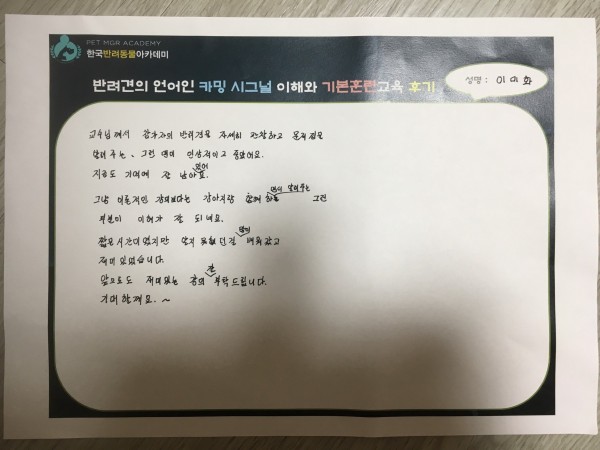 PET MGR ACADEMY
한국반려동물아카데미
반려견의 언어인 카밍 시그널 이해와 기본훈련교육 후기
성명 : 이미화
교수님께서 강사자의 반려견을 자세히 관찰하고 문제점을
알려 주는, 그런 면이 인상적이고 좋았어요.
지금도 기억에 잘 남아요.
그냥 이론적인 강의보다는 강아지랑 함께 하는 다시 알려주는 그런
부분이 이해가 잘 되네요.
짧은 시간이었지만 알지 못했던걸 많이 배워갔고
재미있었습니다.
앞으로도 재미있는 강의 잘 부탁드립니다.
기대할게요. ~